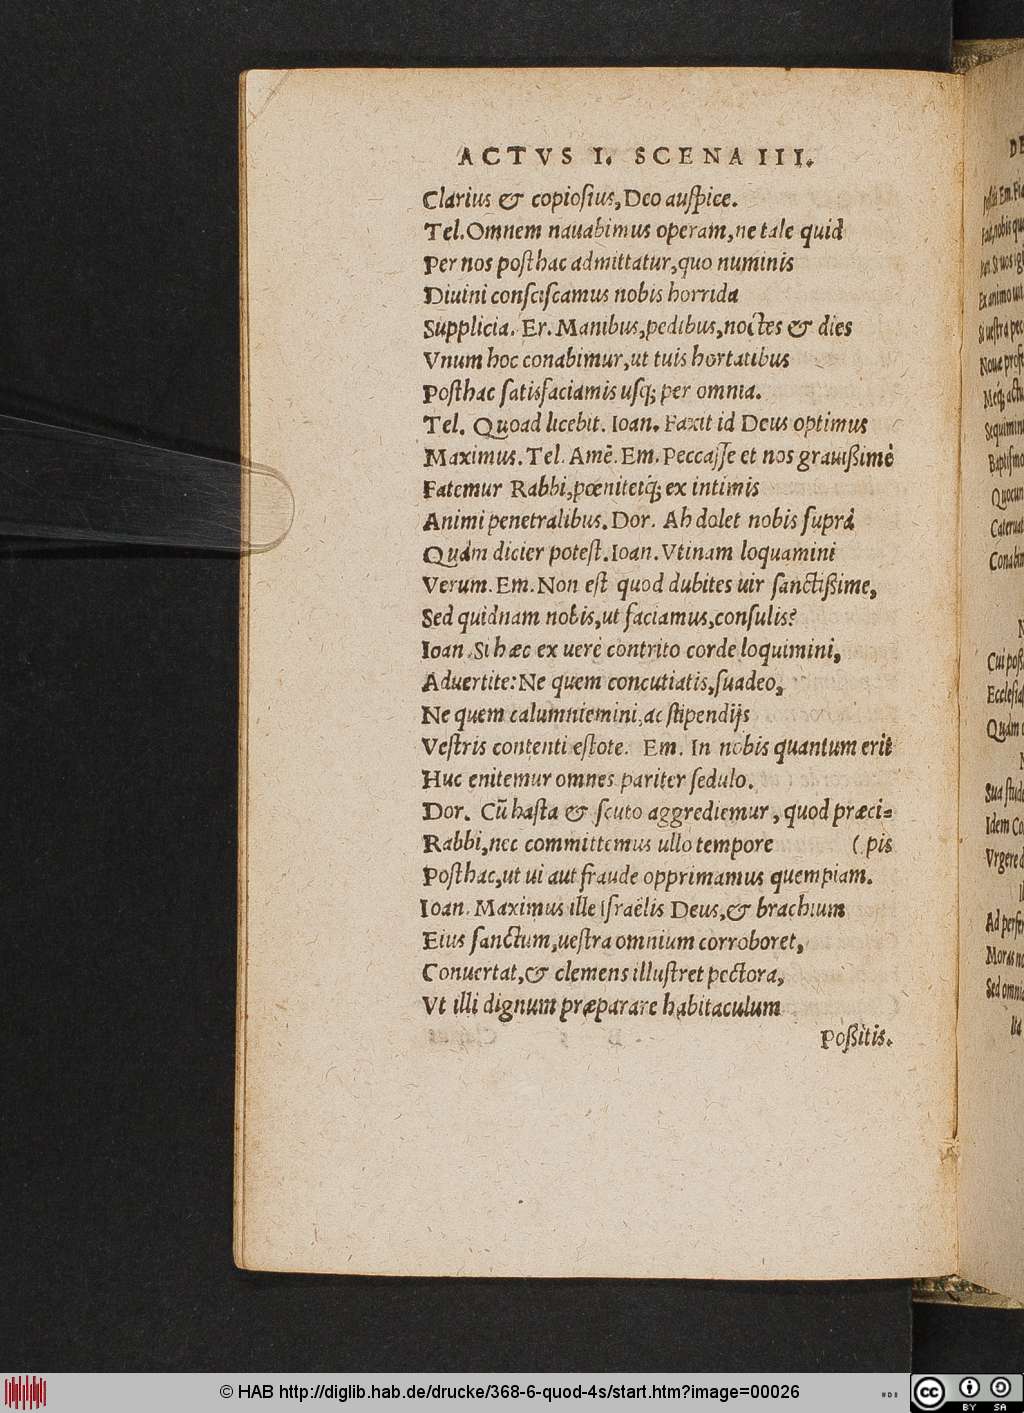 ACTVS I. SCENA III.
Clarius & copiosius, Deo auspice.
Tel. Omnem nauabimus operam, ne tale quid
Per nos posthac admittatur, quo numinis
Diuini consciscamus nobis horrida
Supplicia. Er. Manibus, pedibus, noctes & dies
Vnum hoc conabimur, ut tuis hortatibus
Posthac satisfaciamis usq; per omnia.
Tel. Quoad licebit. Ioan. Faxit id Deus optimus
Maximus. Tel. Amē. Em. Peccasse et nos grauißimè
Fatemur Rabbi, pœnitetq́; ex intimis
Animi penetralibus. Dor. Ah dolet nobis suprà
Quàm dicier potest. Ioan. Vtinam loquamini
Verum. Em. Non est quod dubites uir sanctißime,
Sed quidnam nobis, ut faciamus, consulis?
Ioan. Si hæc ex uerè contrito corde loquimini,
Aduertite: Ne quem concutiatis, suadeo,
Ne quem calumniemini, ac stipendijs
Vestris contenti estote. Em. In nobis quantum erit
Huc enitemur omnes pariter sedulo.
Dor. Cū hasta & scuto aggrediemur, quod præci=
Rabbi, nec committemus ullo tempore (pis
Posthac, ut ui aut fraude opprimamus quempiam.
Ioan. Maximus ille Israëlis Deus, & brachium
Eius sanctum, uestra omnium corroboret,
Conuertat, & clemens illustret pectora,
Vt illi dignum præparare habitaculum
Poßitis.
© HAB http://diglib.hab.de/drucke/368-6-quod-4s/start.htm?image=00026
cc BY SA